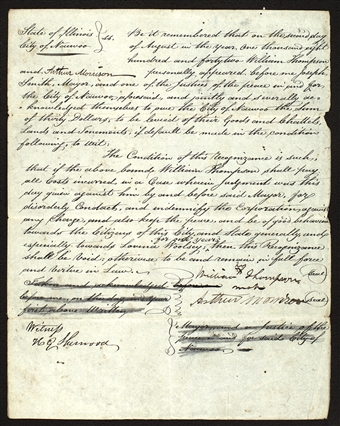 State of Illinois } ss. Be it remembered that on the second day
City of Nauvoo of August in the year, One thousand eight
hundred and forty two William Thompson
and Arthur Morrison personally appeared before me Joseph
Smith, Mayor, and one of the Justices of the peace in and for
the City of Nauvoo, aforesaid, and jointly and severally ac-
knowledged themselves to owe the City of Nauvoo the Sum
of thirty Dollars, to be levied of their Goods and Chattels,
Lands and Tenements, if default be made in the condition
following, to wit.
The Condition of this Recognizance is such,
that if the above bounde William Thompson shall pay
all Costs incurred in a Case wherein judgement was this
day given against him by and before said Mayor, for
disorderly Conduct, and indemnify the Corporation against
any Charge, and also keep the peace and be of good behavior
towards the Citizens of this City and State generally, and
for one year
especially towards Woolsey, then this Recognizance
shall be Void; otherwise to be and remain in full force
and Virtue in Law.
William Thompson Seal
mark
Taken and acknowledged before
before me, on the day and year
first above Written
Arthur Morrison Seal
Witness
H G Sherwood
Mayor and Justice of the
Peace for said City of
Nauvoo